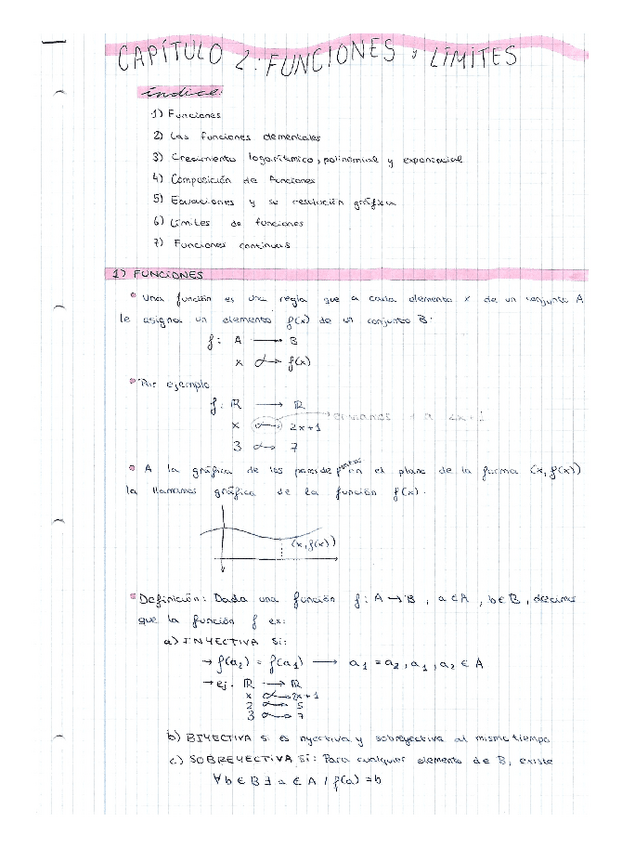 CAPÍTULO 2: FUNCIONES y LÍMITES
índice:
1) Funciones
2) Las funciones elementales
3) Crecimiento logarítmico, polinomial y exponencial
4) Composición de funciones
5) Ecuaciones y su resolución gráfica
6) Límites de funciones
7) Funciones continuas
1) FUNCIONES
Una función es una regla que a cada elemento x de un conjunto A
le asigna un elemento f(x) de un conjunto B.
f: A → B
x → f(x)
Por ejemplo
f: ℝ → ℝ
x → 2x+1
3 → 7
A la gráfica de los pares de puntos en el plano de la forma (x, f(x))
la llamamos gráfica de la función f(x).
(x, f(x))
Definición: Dada una función f: A → B, a ∈ A, b ∈ B, decimos
que la función f es:
a) INYECTIVA si:
→ f(a₂) = f(a₁) → a₁ = a₂, a₁, a₂ ∈ A
→ ej. ℝ → ℝ
x → 2x+1
2 → 5
3 → 7
b) BIYECTIVA si es inyectiva y sobreyectiva al mismo tiempo
c) SOBREYECTIVA si: Para cualquier elemento de B, existe
∀ b ∈ B ∃ a ∈ A / f(a) = b